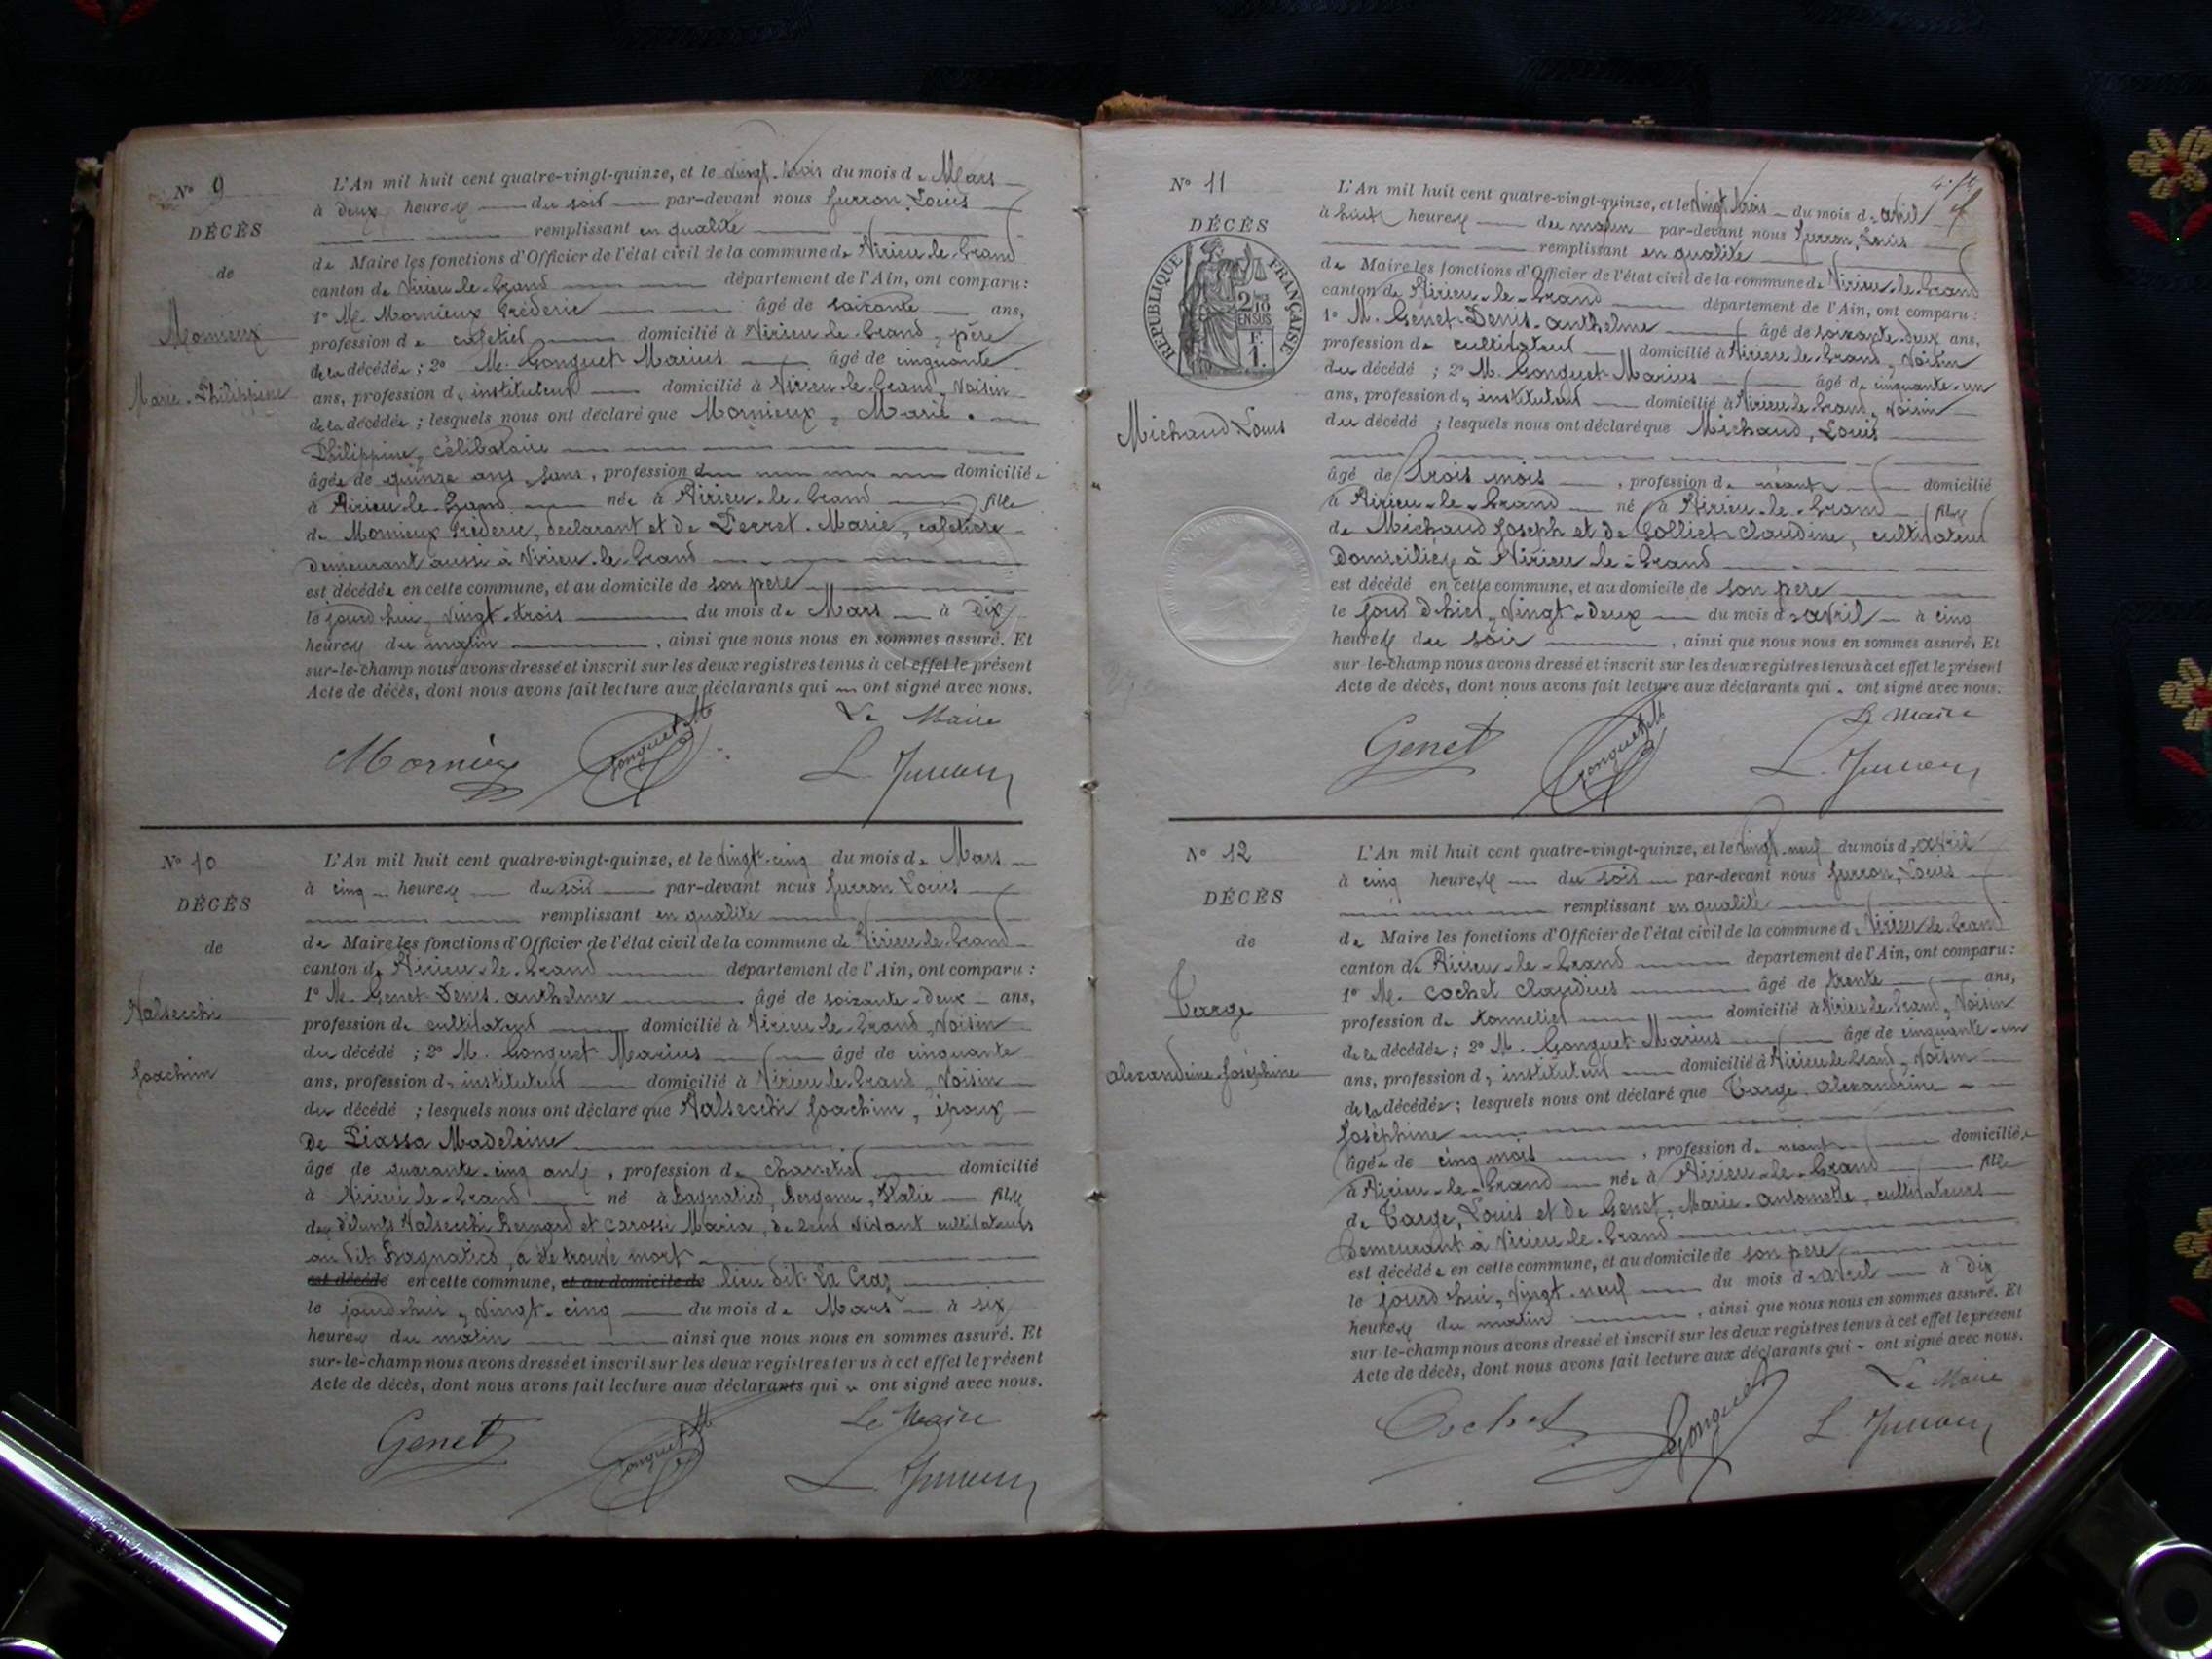 N° 9
DÉCÈS
de
Mornieux
Marie-Philippine
L'An mil huit cent quatre-vingt-quinze, et le vingt-trois du mois de Mars
à deux heures du soir par-devant nous Juvron, Louis
remplissant en qualité
de Maire les fonctions d'Officier de l'état civil de la commune de Virieu-le-Grand
canton de Virieu-le-Grand département de l'Ain, ont comparu :
1° M. Mornieux Fréderic âgé de soixante ans,
profession de cafetier domicilié à Virieu-le-Grand, père
de la décédée ; 2° M. Gonguet Marius âgé de cinquante
ans, profession d'instituteur domicilié à Virieu-le-Grand, voisin
de la décédée ; lesquels nous ont déclaré que Mornieux, Marie
Philippine, célibataire
âgée de quinze ans, sans, profession domiciliée
à Virieu-le-Grand née à Virieu-le-Grand fille
de Mornieux Fréderic, déclarant et de Perret Marie, cafetière
demeurant aussi à Virieu-le-Grand
est décédée en cette commune, et au domicile de son père
le jourd'hui, vingt-trois du mois de Mars à dix
heures du matin, ainsi que nous nous en sommes assuré. Et
sur-le-champ nous avons dressé et inscrit sur les deux registres tenus à cet effet le présent
Acte de décès, dont nous avons fait lecture aux déclarants qui ont signé avec nous.
Le Maire
Gonguet M
N° 10
DÉCÈS
de
Valsecchi
Joachim
L'An mil huit cent quatre-vingt-quinze, et le vingt-cinq du mois de Mars
à cinq heures du soir par-devant nous Juvron Louis
remplissant en qualité
de Maire les fonctions d'Officier de l'état civil de la commune de Virieu-le-Grand
canton de Virieu-le-Grand département de l'Ain, ont comparu :
1° M. Genet Denis-anthelme âgé de soixante-deux ans,
profession de cultivateur domicilié à Virieu-le-Grand, voisin
du décédé ; 2° M. Gonguet Marius âgé de cinquante
ans, profession d'instituteur domicilié à Virieu-le-Grand, voisin
du décédé ; lesquels nous ont déclaré que Valsecchi Joachim, époux
de Piassa Madeleine
âgé de quarante-cinq ans, profession de charretier domicilié
à Virieu-le-Grand né à Bagnatico, Bergame, Italie fils
des défunts Valsecchi Bernard et Carossi Maria, de leur vivant cultivateurs
au dit Bagnatico, a été trouvé mort
est décédé en cette commune, et au domicile de lieu dit La Craz
le jourd'hui, vingt-cinq du mois de Mars à six
heures du matin ainsi que nous nous en sommes assuré. Et
sur-le-champ nous avons dressé et inscrit sur les deux registres tenus à cet effet le présent
Acte de décès, dont nous avons fait lecture aux déclarants qui ont signé avec nous.
Le Maire
Genet
Gonguet M
N° 11
DÉCÈS
RÉPUBLIQUE FRANÇAISE
2/10 EN SUS
F. 1.
Michaud Louis
L'An mil huit cent quatre-vingt-quinze, et le vingt-trois du mois d'avril
à huit heures du matin par-devant nous Juvron, Louis
remplissant en qualité
de Maire les fonctions d'Officier de l'état civil de la commune de Virieu-le-Grand
canton de Virieu-le-Grand département de l'Ain, ont comparu :
1° M. Genet Denis-anthelme âgé de soixante-deux ans,
profession de cultivateur domicilié à Virieu-le-Grand, voisin
du décédé ; 2° M. Gonguet Marius âgé de cinquante-un
ans, profession d'instituteur domicilié à Virieu-le-Grand, voisin
du décédé ; lesquels nous ont déclaré que Michaud, Louis
âgé de trois mois, profession de néant domicilié
à Virieu-le-Grand né à Virieu-le-Grand fils
de Michaud Joseph et de Golliet Claudine, cultivateurs
domiciliés à Virieu-le-Grand
est décédé en cette commune, et au domicile de son père
le jour d'hier, vingt-deux du mois d'avril à cinq
heures du soir, ainsi que nous nous en sommes assuré. Et
sur-le-champ nous avons dressé et inscrit sur les deux registres tenus à cet effet le présent
Acte de décès, dont nous avons fait lecture aux déclarants qui ont signé avec nous.
Le Maire
Genet
Gonguet M
N° 12
DÉCÈS
de
Targe
alexandrine-Joséphine
L'An mil huit cent quatre-vingt-quinze, et le vingt-neuf du mois d'avril
à cinq heures du soir par-devant nous Juvron, Louis
remplissant en qualité
de Maire les fonctions d'Officier de l'état civil de la commune de Virieu-le-Grand
canton de Virieu-le-Grand département de l'Ain, ont comparu :
1° M. Cochet Claudius âgé de trente ans,
profession de tonnelier domicilié à Virieu-le-Grand, voisin
de la décédée ; 2° M. Gonguet Marius âgé de cinquante-un
ans, profession d'instituteur domicilié à Virieu-le-Grand, voisin
de la décédée ; lesquels nous ont déclaré que Targe, alexandrine
Joséphine
âgée de cinq mois, profession de néant domiciliée
à Virieu-le-Grand née à Virieu-le-Grand fille
de Targe, Louis et de Genet, Marie-antoinette, cultivateurs
demeurant à Virieu-le-Grand
est décédée en cette commune, et au domicile de son père
le jourd'hui, vingt-neuf du mois d'avril à dix
heures du matin, ainsi que nous nous en sommes assuré. Et
sur-le-champ nous avons dressé et inscrit sur les deux registres tenus à cet effet le présent
Acte de décès, dont nous avons fait lecture aux déclarants qui ont signé avec nous.
Le Maire
Cochet
Gonguet